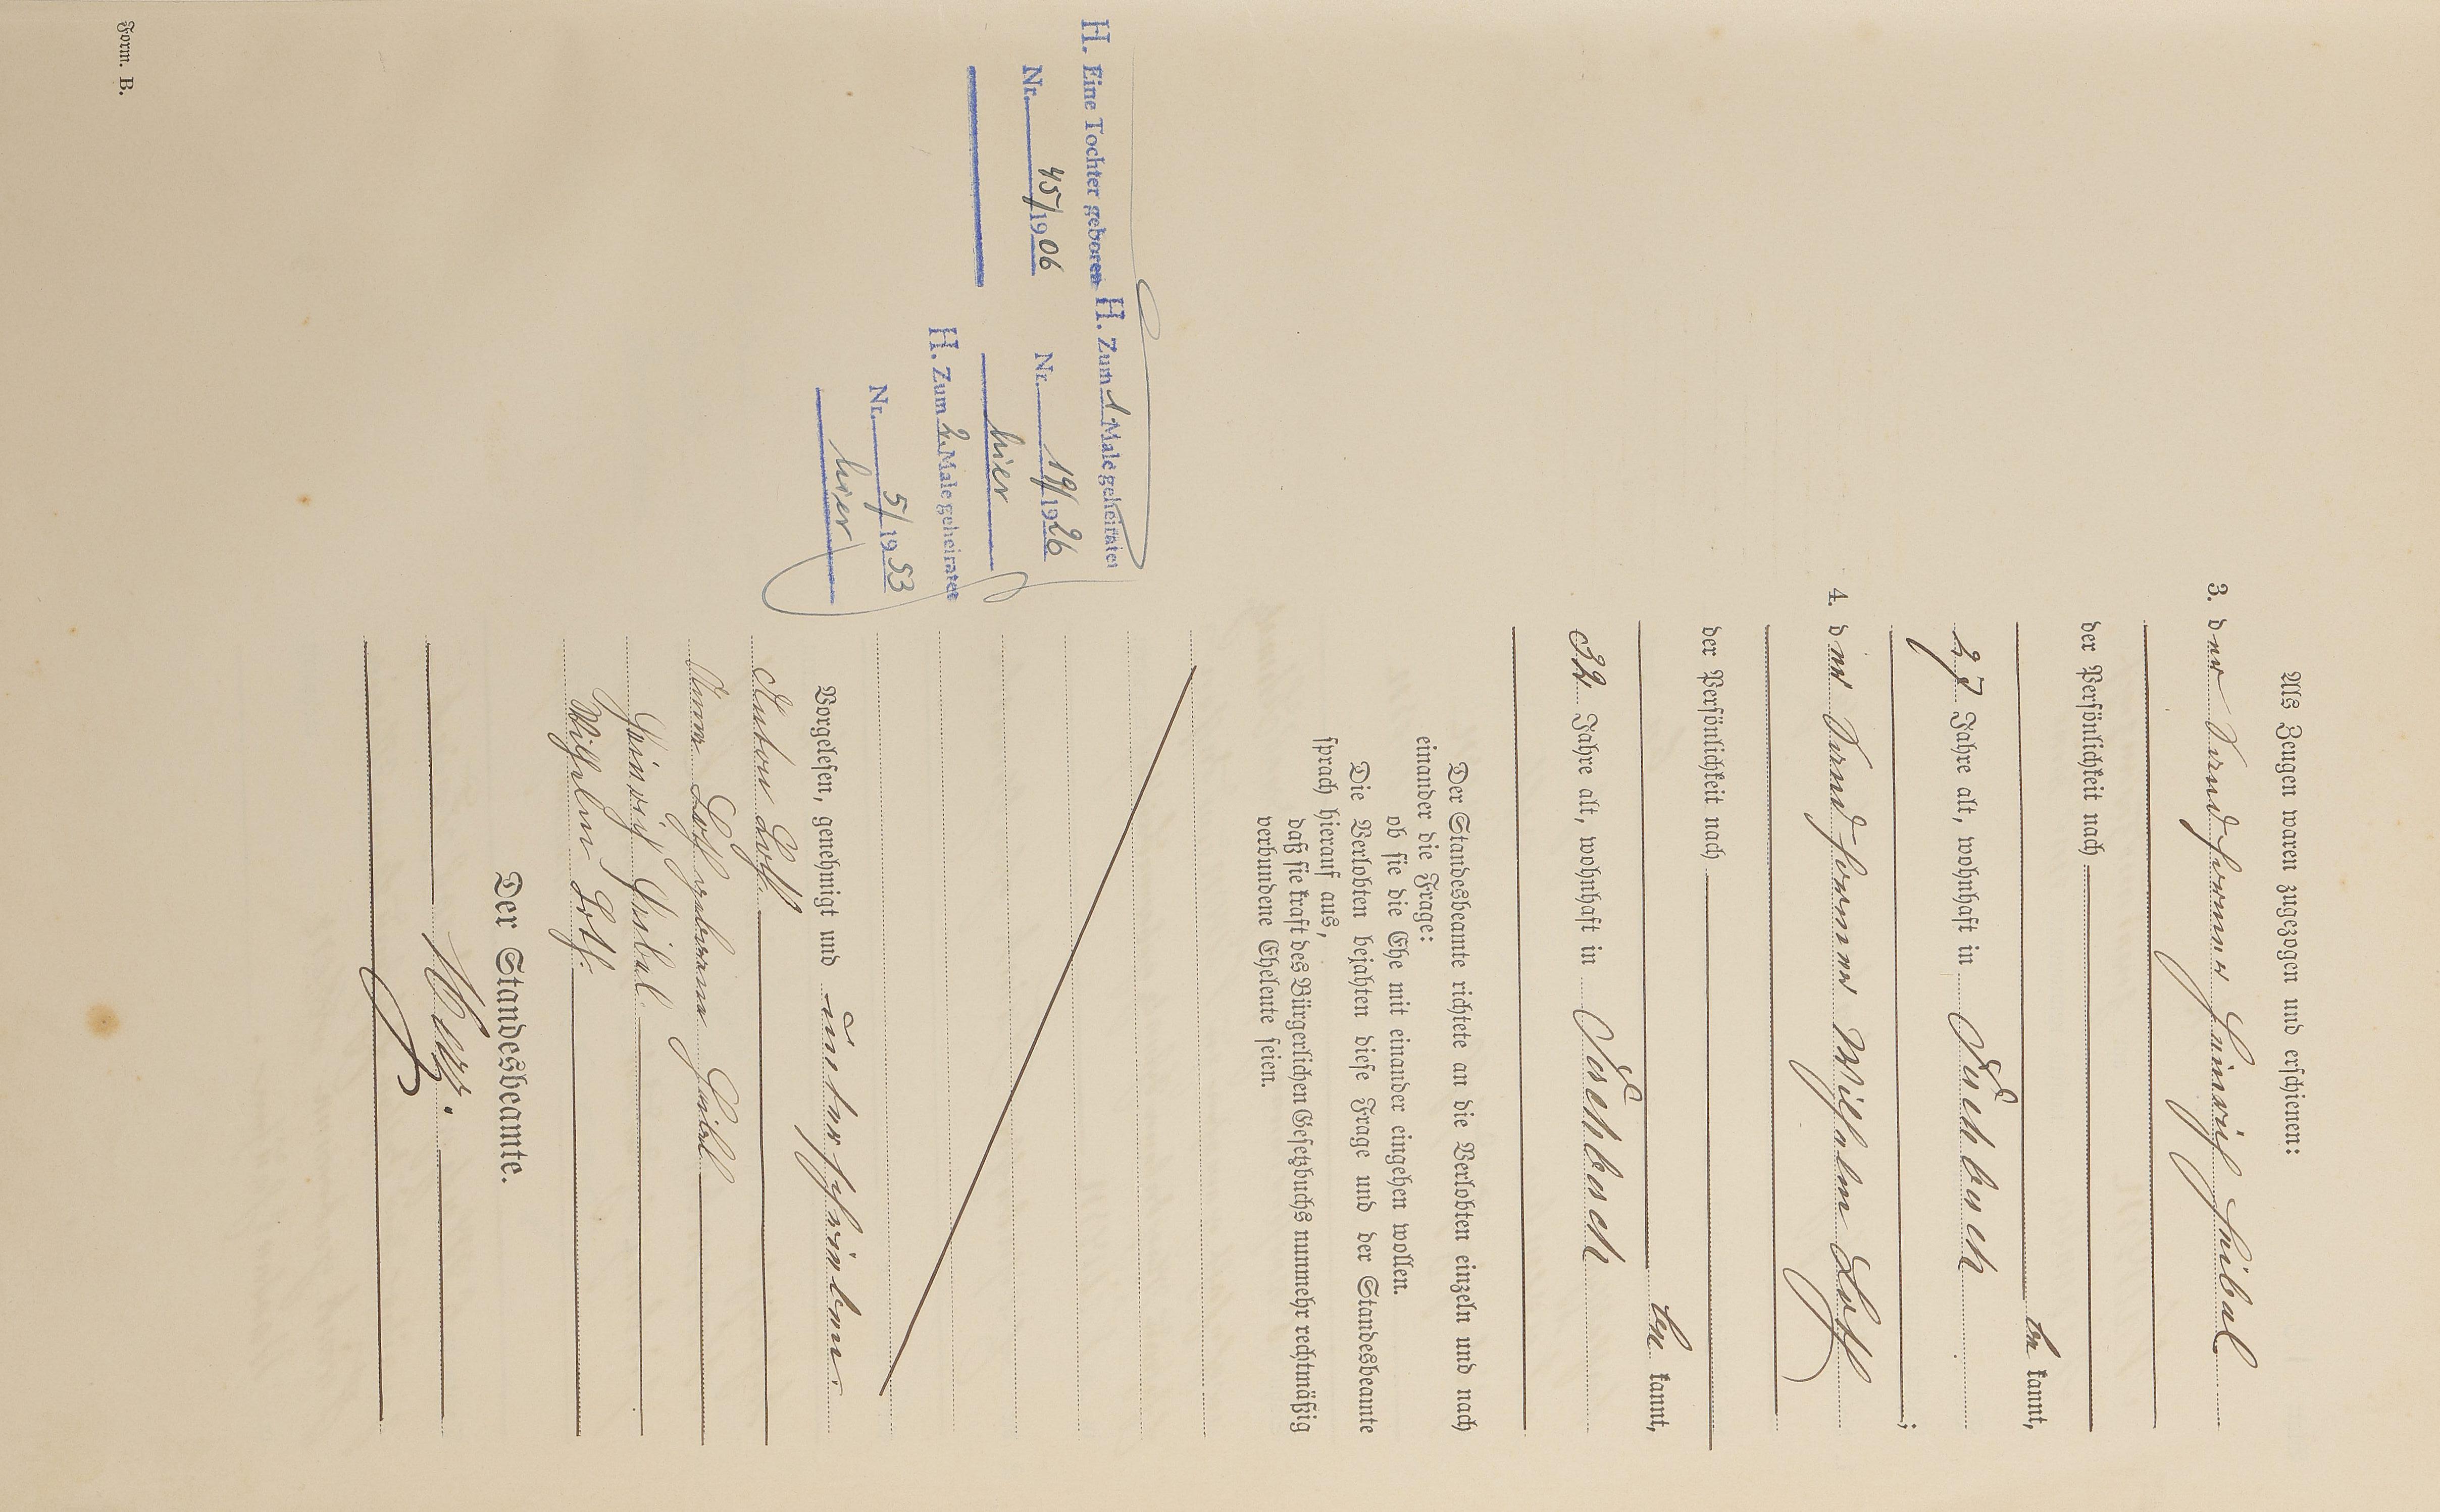 Als Zeugen waren zugezogen und erschienen:
3. der Sandformer Heinrich Seibel
der Persönlichkeit nach
be kannt,
27 Jahre alt, wohnhaft in
4. der Sandformer Wilhelm Loth
;
der Persönlichkeit nach
be kannt,
32 Jahre alt, wohnhaft in
Der Standesbeamte richtete an die Verlobten einzeln und nach
einander die Frage:
ob sie die Ehe mit einander eingehen wollen.
Die Verlobten bejahten diese Frage und der Standesbeamte
sprach hierauf aus,
daß sie kraft des Bürgerlichen Gesetzbuchs nunmehr rechtmäßig
verbundene Eheleute seien.
H. Eine Tochter geboren
Nr. 45/1906
H. Zum 1 Male geheiratet
Nr. 19/1926
hier
H. Zum 2. Male geheiratet
Nr. 5/1953
hier
Vorgelesen, genehmigt und unterschrieben.
Anton Loth
Anna Loth geborene Seibel
Heinrich Seibel
Wilhelm Loth.
Der Standesbeamte.
Form. B.